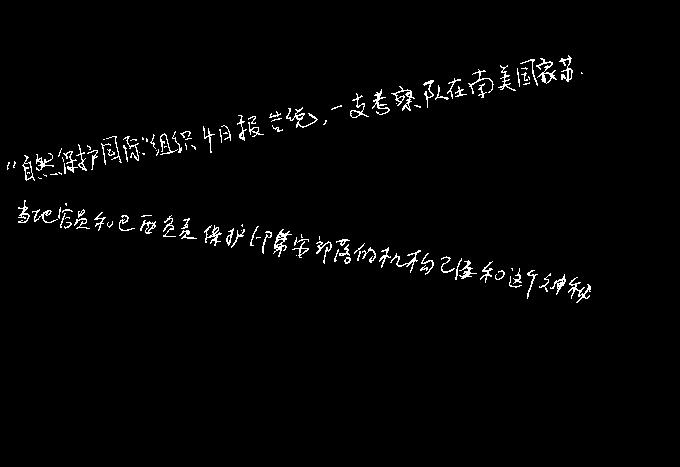 "自然保护国际"组织4日报告说,一支考察队在南美国家苏
当地官员和巴西负责保护印第安部落的机构已经和这个神秘